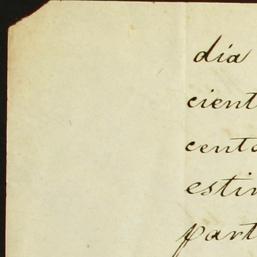 día
cient
cent
esti
part